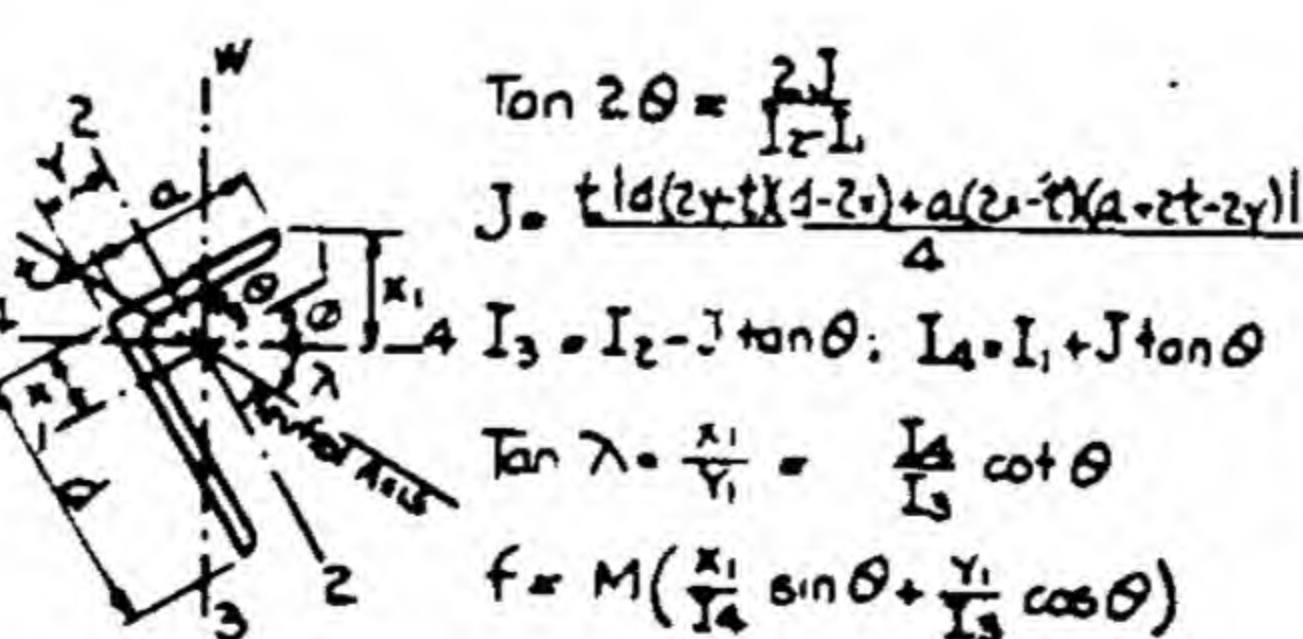 W
2
Y
a
t
θ
Ø
x₁
4
x
λ
Neutral Axis
d
2
3
Tan 2θ = 2J / I₂-I₁
J = t|d(2y-t)(d-2x)+a(2x-t)(a+2t-2y)| / 4
I₃ = I₂-J tanθ: I₄ = I₁+J tanθ
Tan λ = x₁/Y₁ = I₄/I₃ cot θ
f = M(x₁/I₄ sin θ + Y₁/I₃ cos θ)